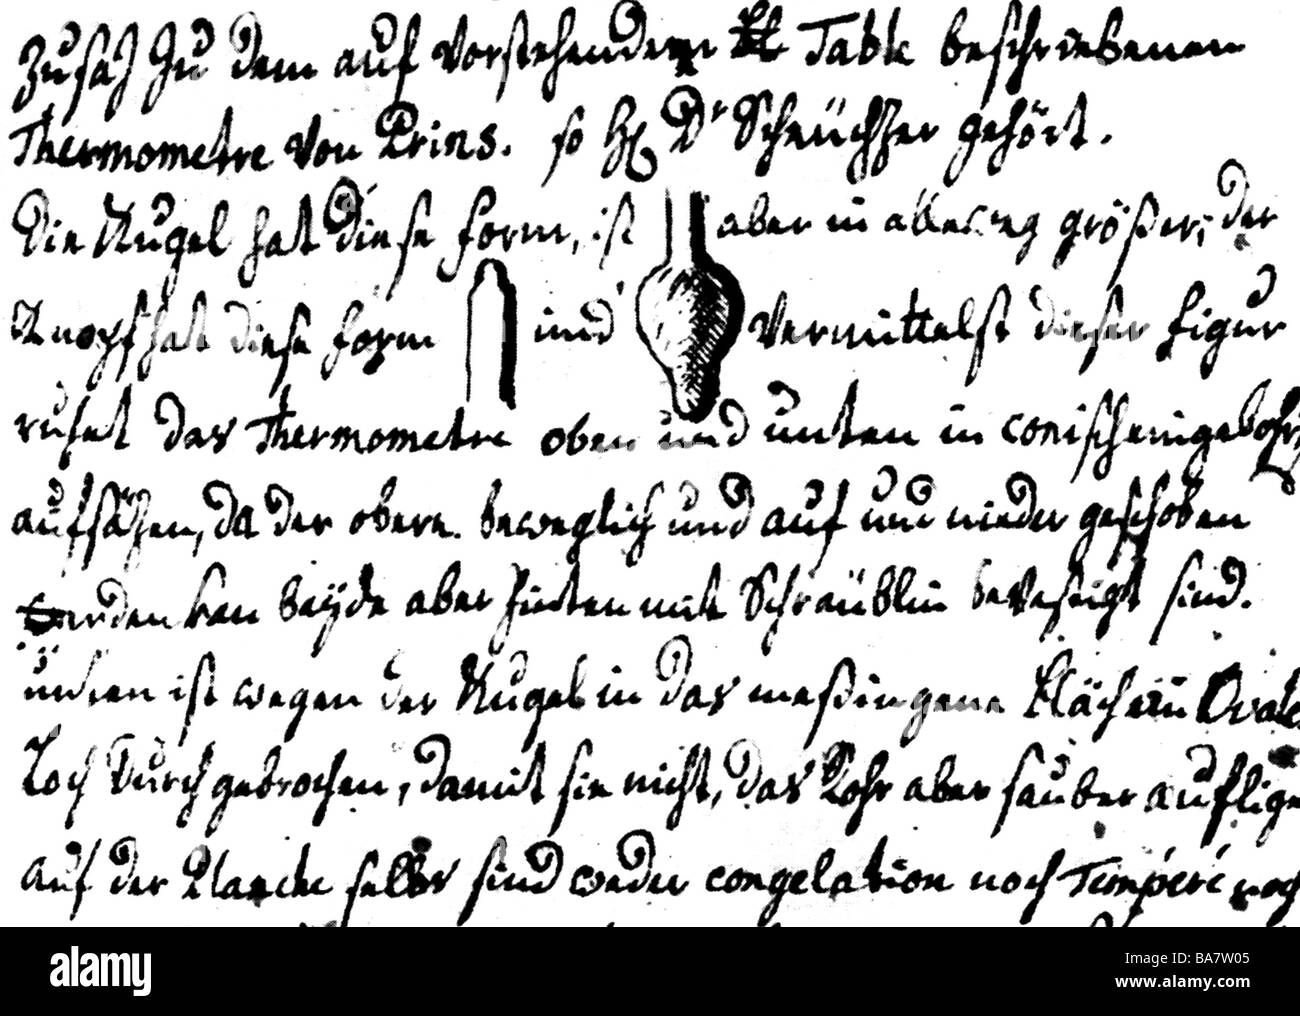 Zusaz Zu dem auf Vorstehendem Table beschriebenen
Thermometre Von Prins. so H. Dr Scheüchzer gehört.
Die Kugel hat diese form, ist aber in alleweg größer; der
Knopf hat diese form und Vermittelst dieser figur
ruhet das Thermometre oben und unten in conischeingebohrt
aufsäzen, da der obere beweglich und auf und nieder geschoben
werden kan beyde aber hinten mit Schräublin bevestigt sind.
unten ist wegen der Kugel in das meßingene Oval
Loch Durchgebrochen, damit sie nicht, das Rohr aber sauber auflige
auf der Planche selbs sind weder congelation noch Temperé noch
alamy
alamy stock photo
BA7W05
www.alamy.com